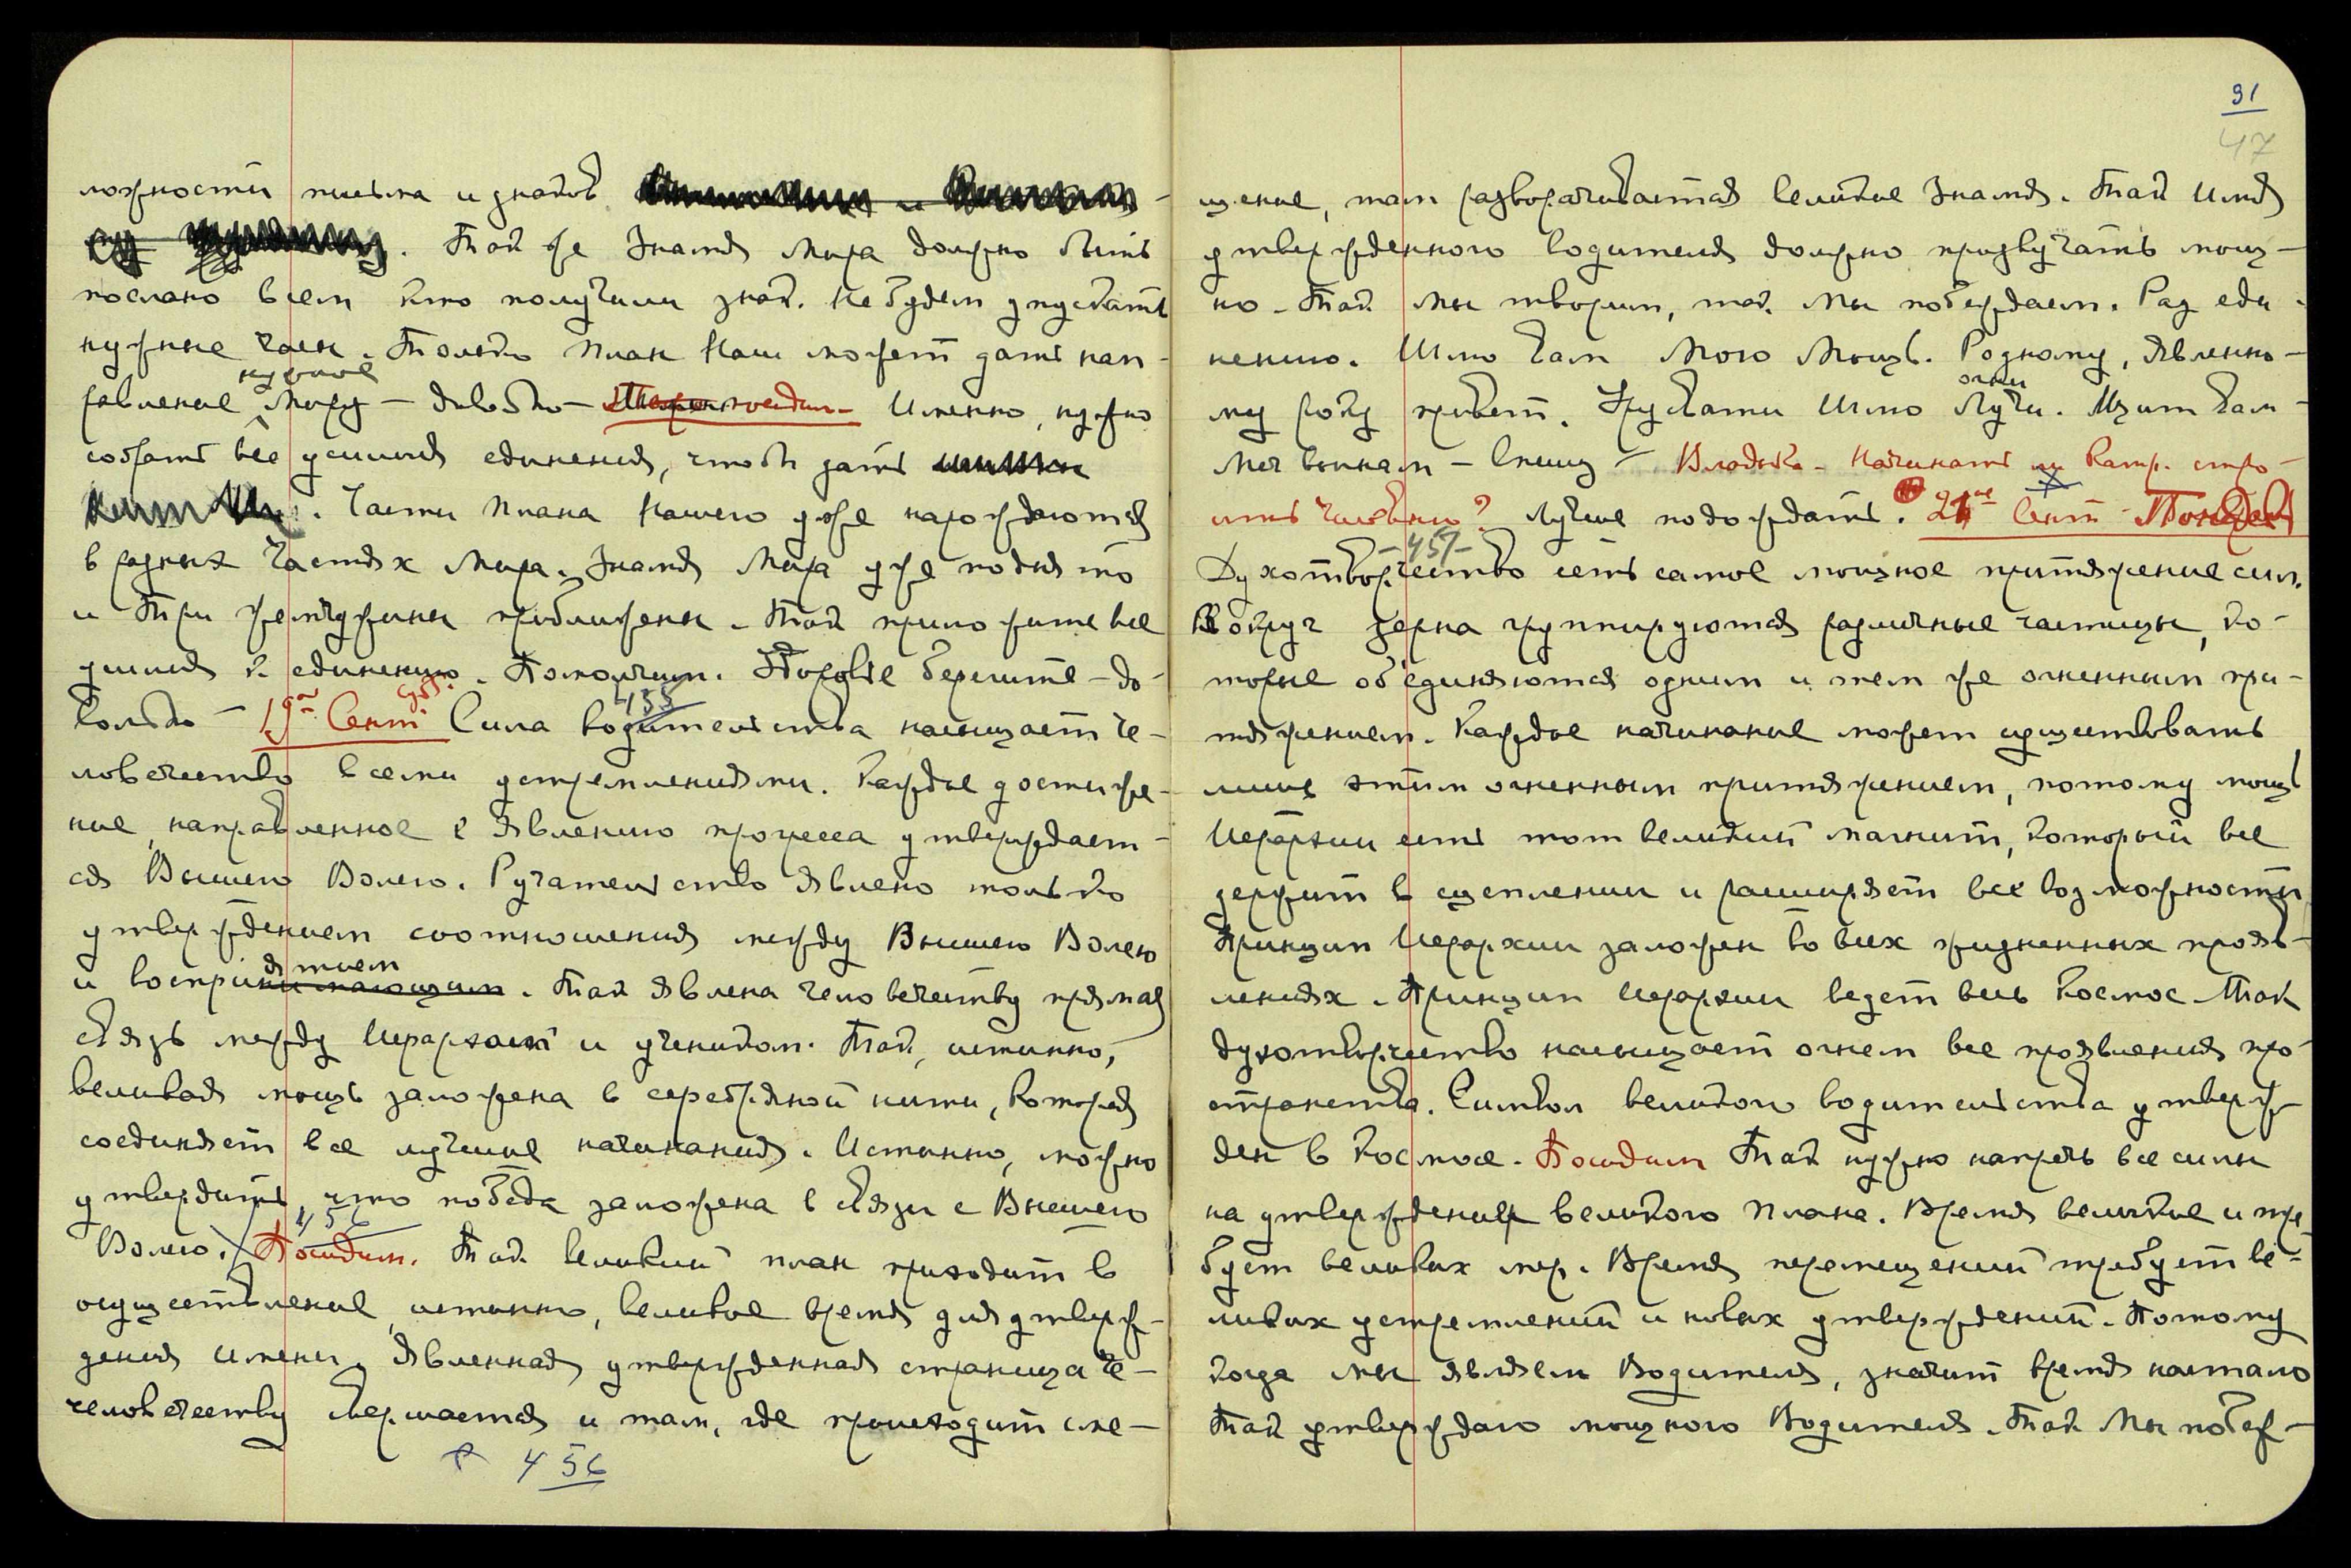 ложности письма и знаков
. Так же Знамя Мира должно быть
послано всем кто получили знак. Не будем упускать
нужные часы. Только План Наш может дать нап-
нужное
равление Миру – довольно – посидим – Именно, нужно
собрать все усилия единения, чтобы дать
. Части Плана Нашего уже нарождаются
в разных частях Мира. Знамя Мира уже поднято
и Три жемчужины приближены. Так приложите все
усилия к единению. Помолчим. Здоровье берегите – до-
455
вольно – 19ое Сент. Сила водительства насыщает че-
ловечество всеми устремлениями. Каждое достиже-
ние, направленное к явлению прогресса утверждает-
ся Высшею Волею. Ручательство явлено только
утверждением соотношения между Высшею Волею
ятием
и воспринимающим. Так явлена человечеству прямая
связь между Иерархом и учеником. Так, истинно,
великая мощь заложена в серебряной нити, которая
соединяет все лучшие начинания. Истинно, можно
утвердить, что победа заложена в связи с Высшею
456
Волею. Посидим. Так великий план приходит в
осуществление, истинно, великое время для утверж-
дения Имени. Явленная утвержденная страница че-
человечеству свершается и там, где происходит сме-
456
91
47
щение, там разворачивается великое Знамя. Так Имя
утвержденного водителя должно прозвучать мощ-
но. Так мы творим, так мы побеждаем. Рад еди-
нению. Шлю вам Мою Мощь. Родному, явленно-
огни
му роду привет. Шлю Лучи. Щит вам
Меч врагам – спишу – Владыка – Начинать ли Катр. стро-
ить часовню? Лучше подождать. 21ое Сент – Понедел
– 457 –
Духотворчество есть самое мощное притяжение сил.
Вокруг зерна группируются различные частицы, ко-
торые об'единяются одним и тем же огненным при-
тяжением. Каждое начинание может существовать
лишь этим огненным притяжением, потому мощь
Иерархии есть тот великий магнит, который все
держит в сцеплении и расширяет все возможности
Принцип Иерархии заложен во всех жизненных прояв-
лениях. Принцип Иерархии ведет весь Космос. Так
духотворчество насыщает огнем все проявления про-
странства. Символ великого водительства утверж-
ден в Космосе. Посидим Так нужно напречь все силы
на утверждение великого Плана. Время великое и тре-
бует великих мер. Время перемещений требует ве-
ликих устремлений и новых утверждений. Потому
когда мы являем Водителя, значит время настало
Так утверждаю мощного Водителя. Так Мы побеж-